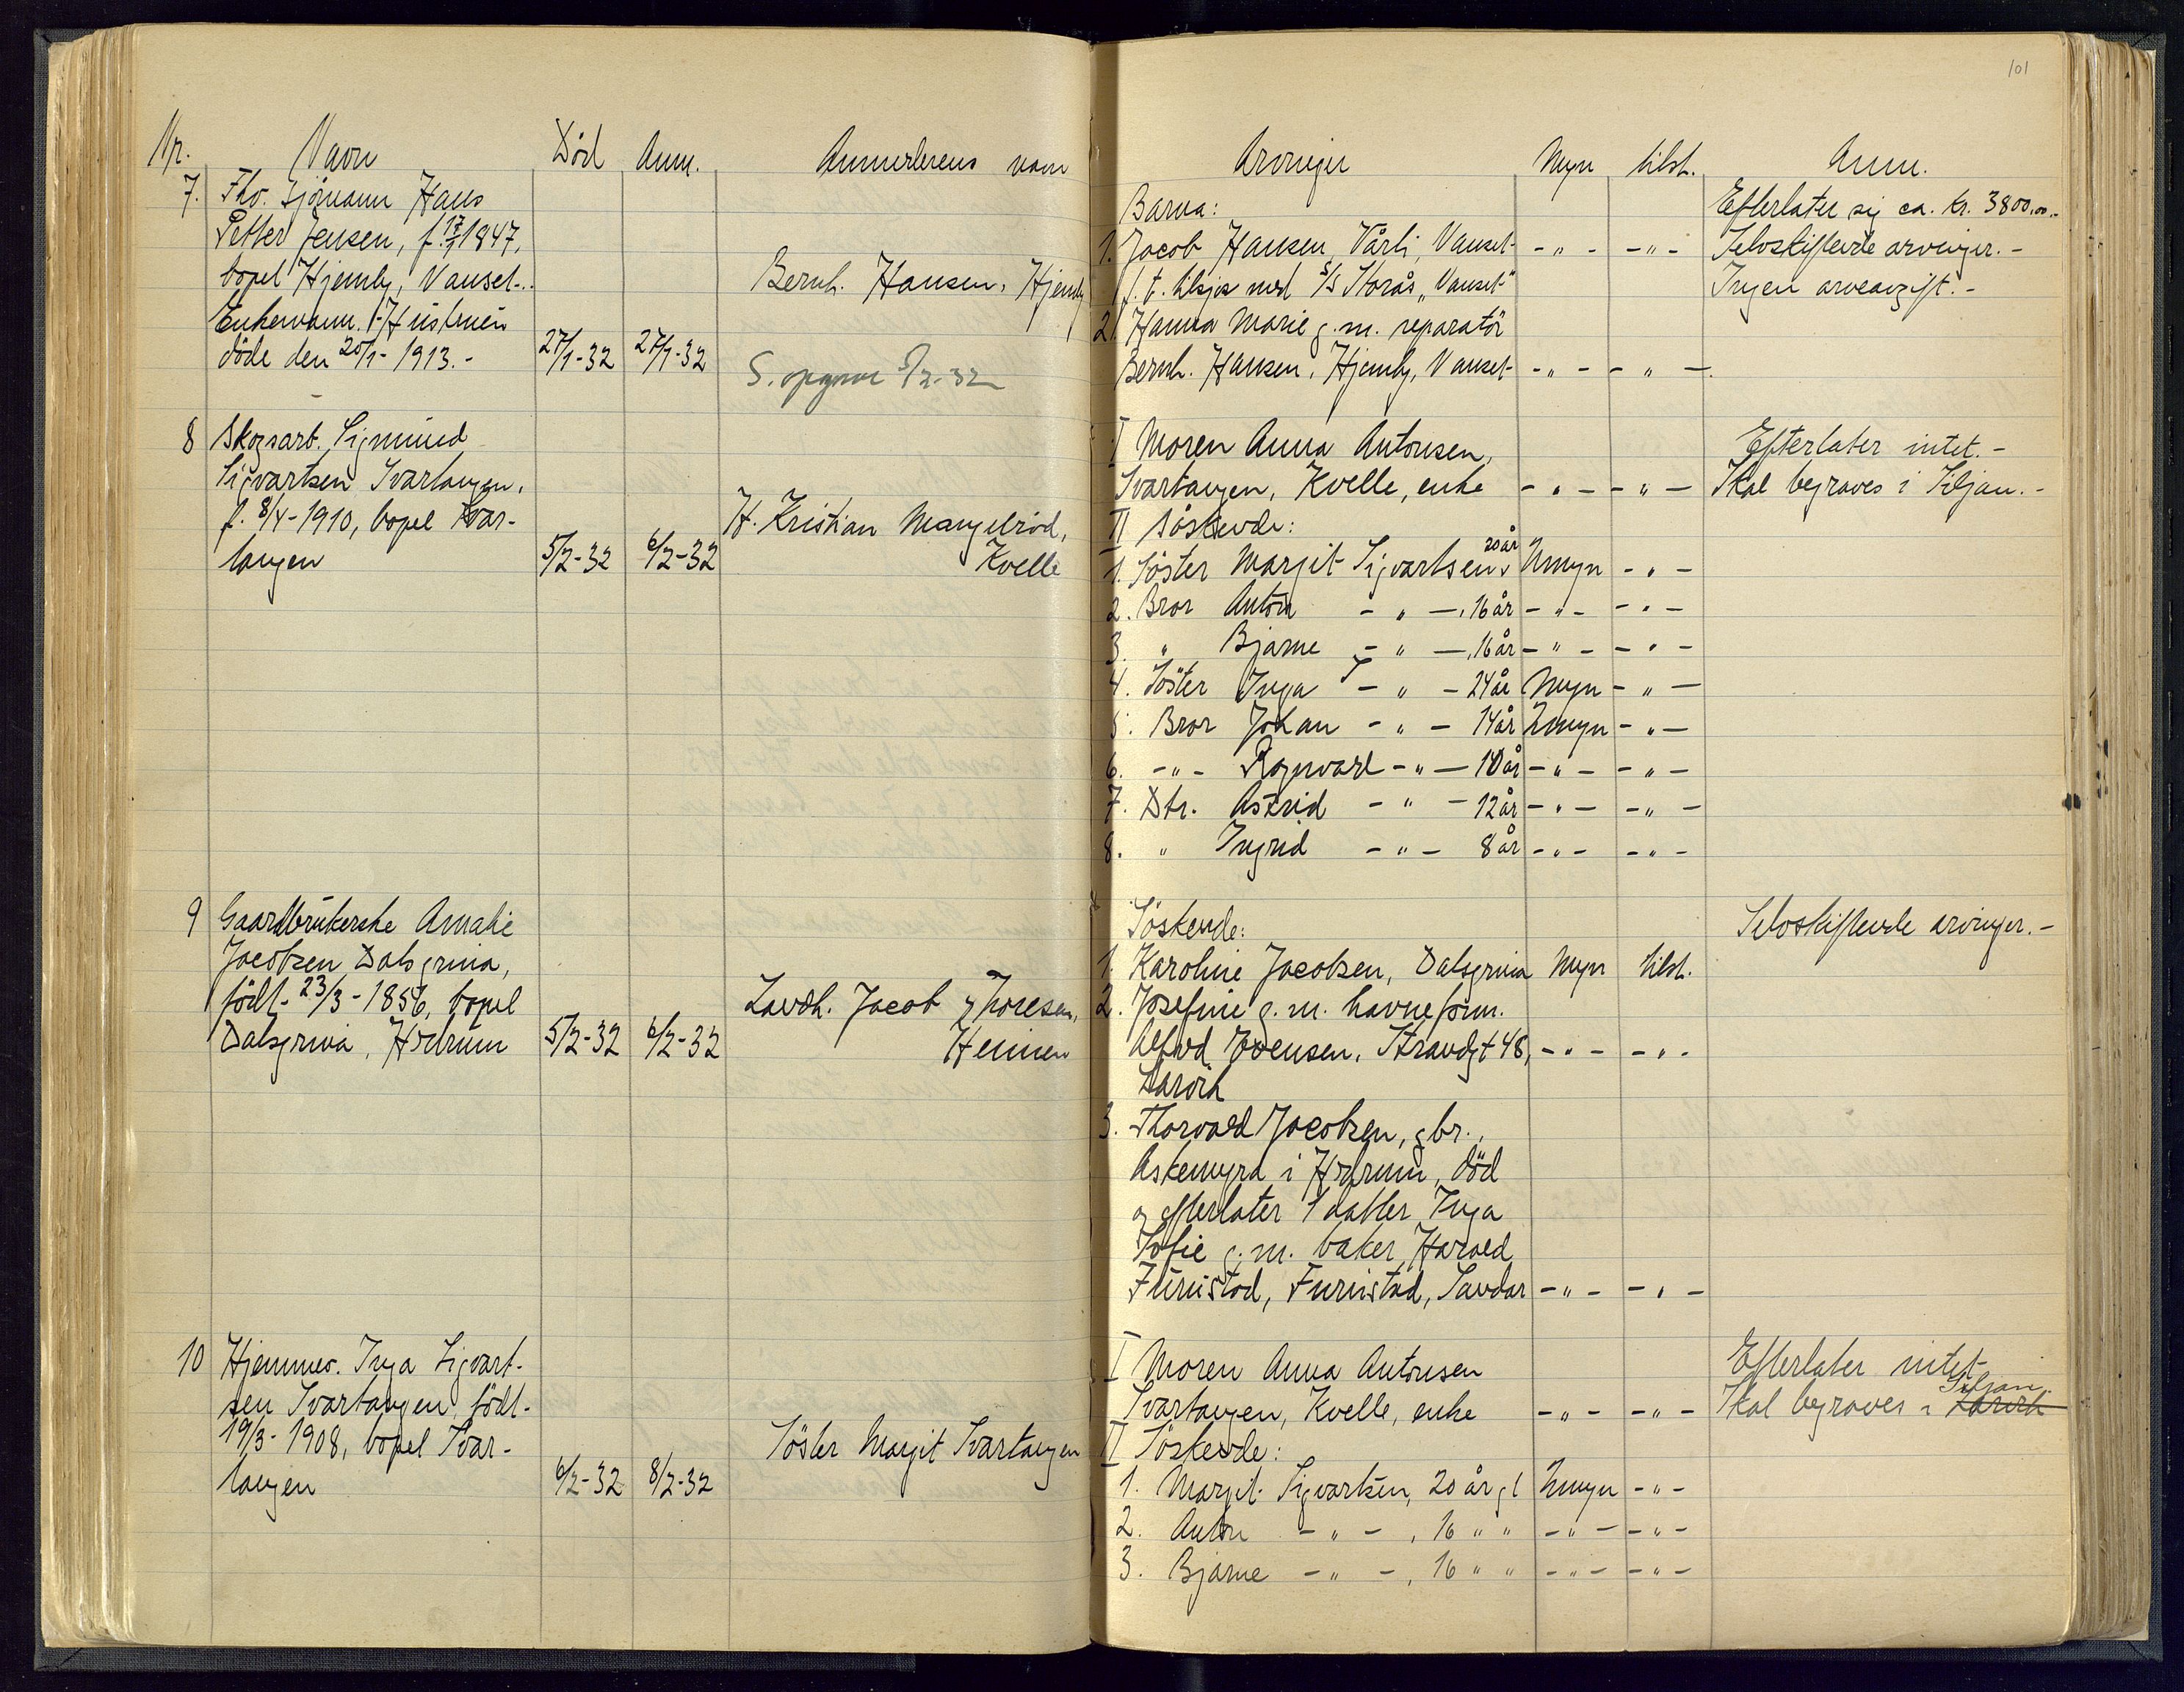 101
Nr. Navn Död Anm. Anmelderens navn
7. Fhv. sjömann Hans
Petter Jensen, f. 17/ 1847,
bopel Hjemly, Nanset.
Enkemann. Hustruen
döde den 20/1- 1913.- 27/1-32 27/1-32
Bernh. Hansen, Hjemly
S. opgave 5/2-32
8 Skogsarb. Sigmund
Sigvartsen Svartangen,
f. 8/4-1910, bopel Svar-
tangen 5/2-32 6/2-32
H. Kristian Mangelröd,
Kvelle
9 Gaardbrukerske Amalie
Jacobsen Dalsgrina,
födt- 23/3-1856, bopel
Dalsgrina, Hedrum 5/2-32 6/2-32
Landh. Jacob Thoresen,
Heimen
10 Hjemmev. Inga Sigvart-
sen Svartangen, födt-
19/3-1908, bopel Svar-
tangen 6/2-32 8/2-32
Söster Margit Svartangen
Arvinger Myn tilst. Anm.
Barna:
1. Jacob Hansen, Vårli, Nanset - " - - " -
f. t. tilsjös med S/S Storås, "Nanset"
2. Hanna Marie g.m. reparatör
Bernh. Hansen, Hjemly, Nanset - " - - " -
Efterlater sig ca. kr. 3800,00.-
Selvskiftende arvinger.-
Ingen arveavgift.-
I Moren Anna Antonsen,
Svartangen, Kvelle, enke - " - - " -
II Söskende:
20 år
1. Söster Margit Sigvartsen, Umyn - " -
2. Bror Anton - " -, 16 år - " - - " -
3. " Bjarne - " -, 16 år - " - - " -
4. Söster Inga - " - 24 år Myn - " -
5. Bror Johan - " - 14 år Umyn - " -
6. - " - Ragnvald - " - 10 år - " - - " -
7. Dtr. Astrid - " - 12 år - " - - " -
8. " Ingrid - " - 8 år - " - - " -
Efterlater intet.-
Skal begraves i Siljan.-
Söskende:
1. Karoline Jacobsen, Dalsgrina Myn tilst.
2. Josefine g.m. havneform.
Alfred Evensen, Strandgt 48, - " - - " -
Larvik
3. Thorvald Jacobsen, gbr.,
Askemyra i Hedrum, död
og efterlater 1 datter Inga
Sofie g.m. baker Harald
Furustad, Furustad, Sandar - " - - " -
Selvskiftende arvinger.-
I Moren Anna Antonsen
Svartangen, Kvelle, enke - " - - " -
II Söskende:
1. Margit Sigvartsen, 20 år gl Umyn - " -
2. Anton - " -, 16 " " - " - - " -
3. Bjarne - " -, 16 " " - " - - " -
Efterlater intet
Siljan.
Skal begraves i Larvik